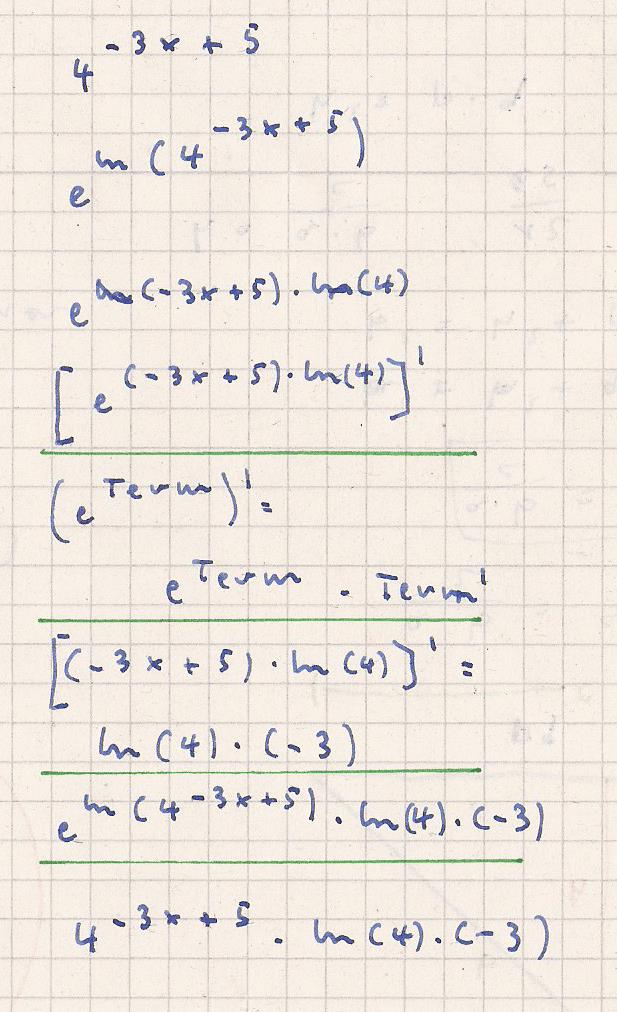 4^(-3x + 5)
e^(ln (4^(-3x + 5)))
e^((-3x + 5) · ln(4))
[e^((-3x + 5) · ln(4))]'
(e^Term)' =
e^Term · Term'
[(-3x + 5) · ln (4)]' =
ln (4) · (-3)
e^(ln (4^(-3x+5))) · ln(4) · (-3)
4^(-3x + 5) · ln (4) · (-3)